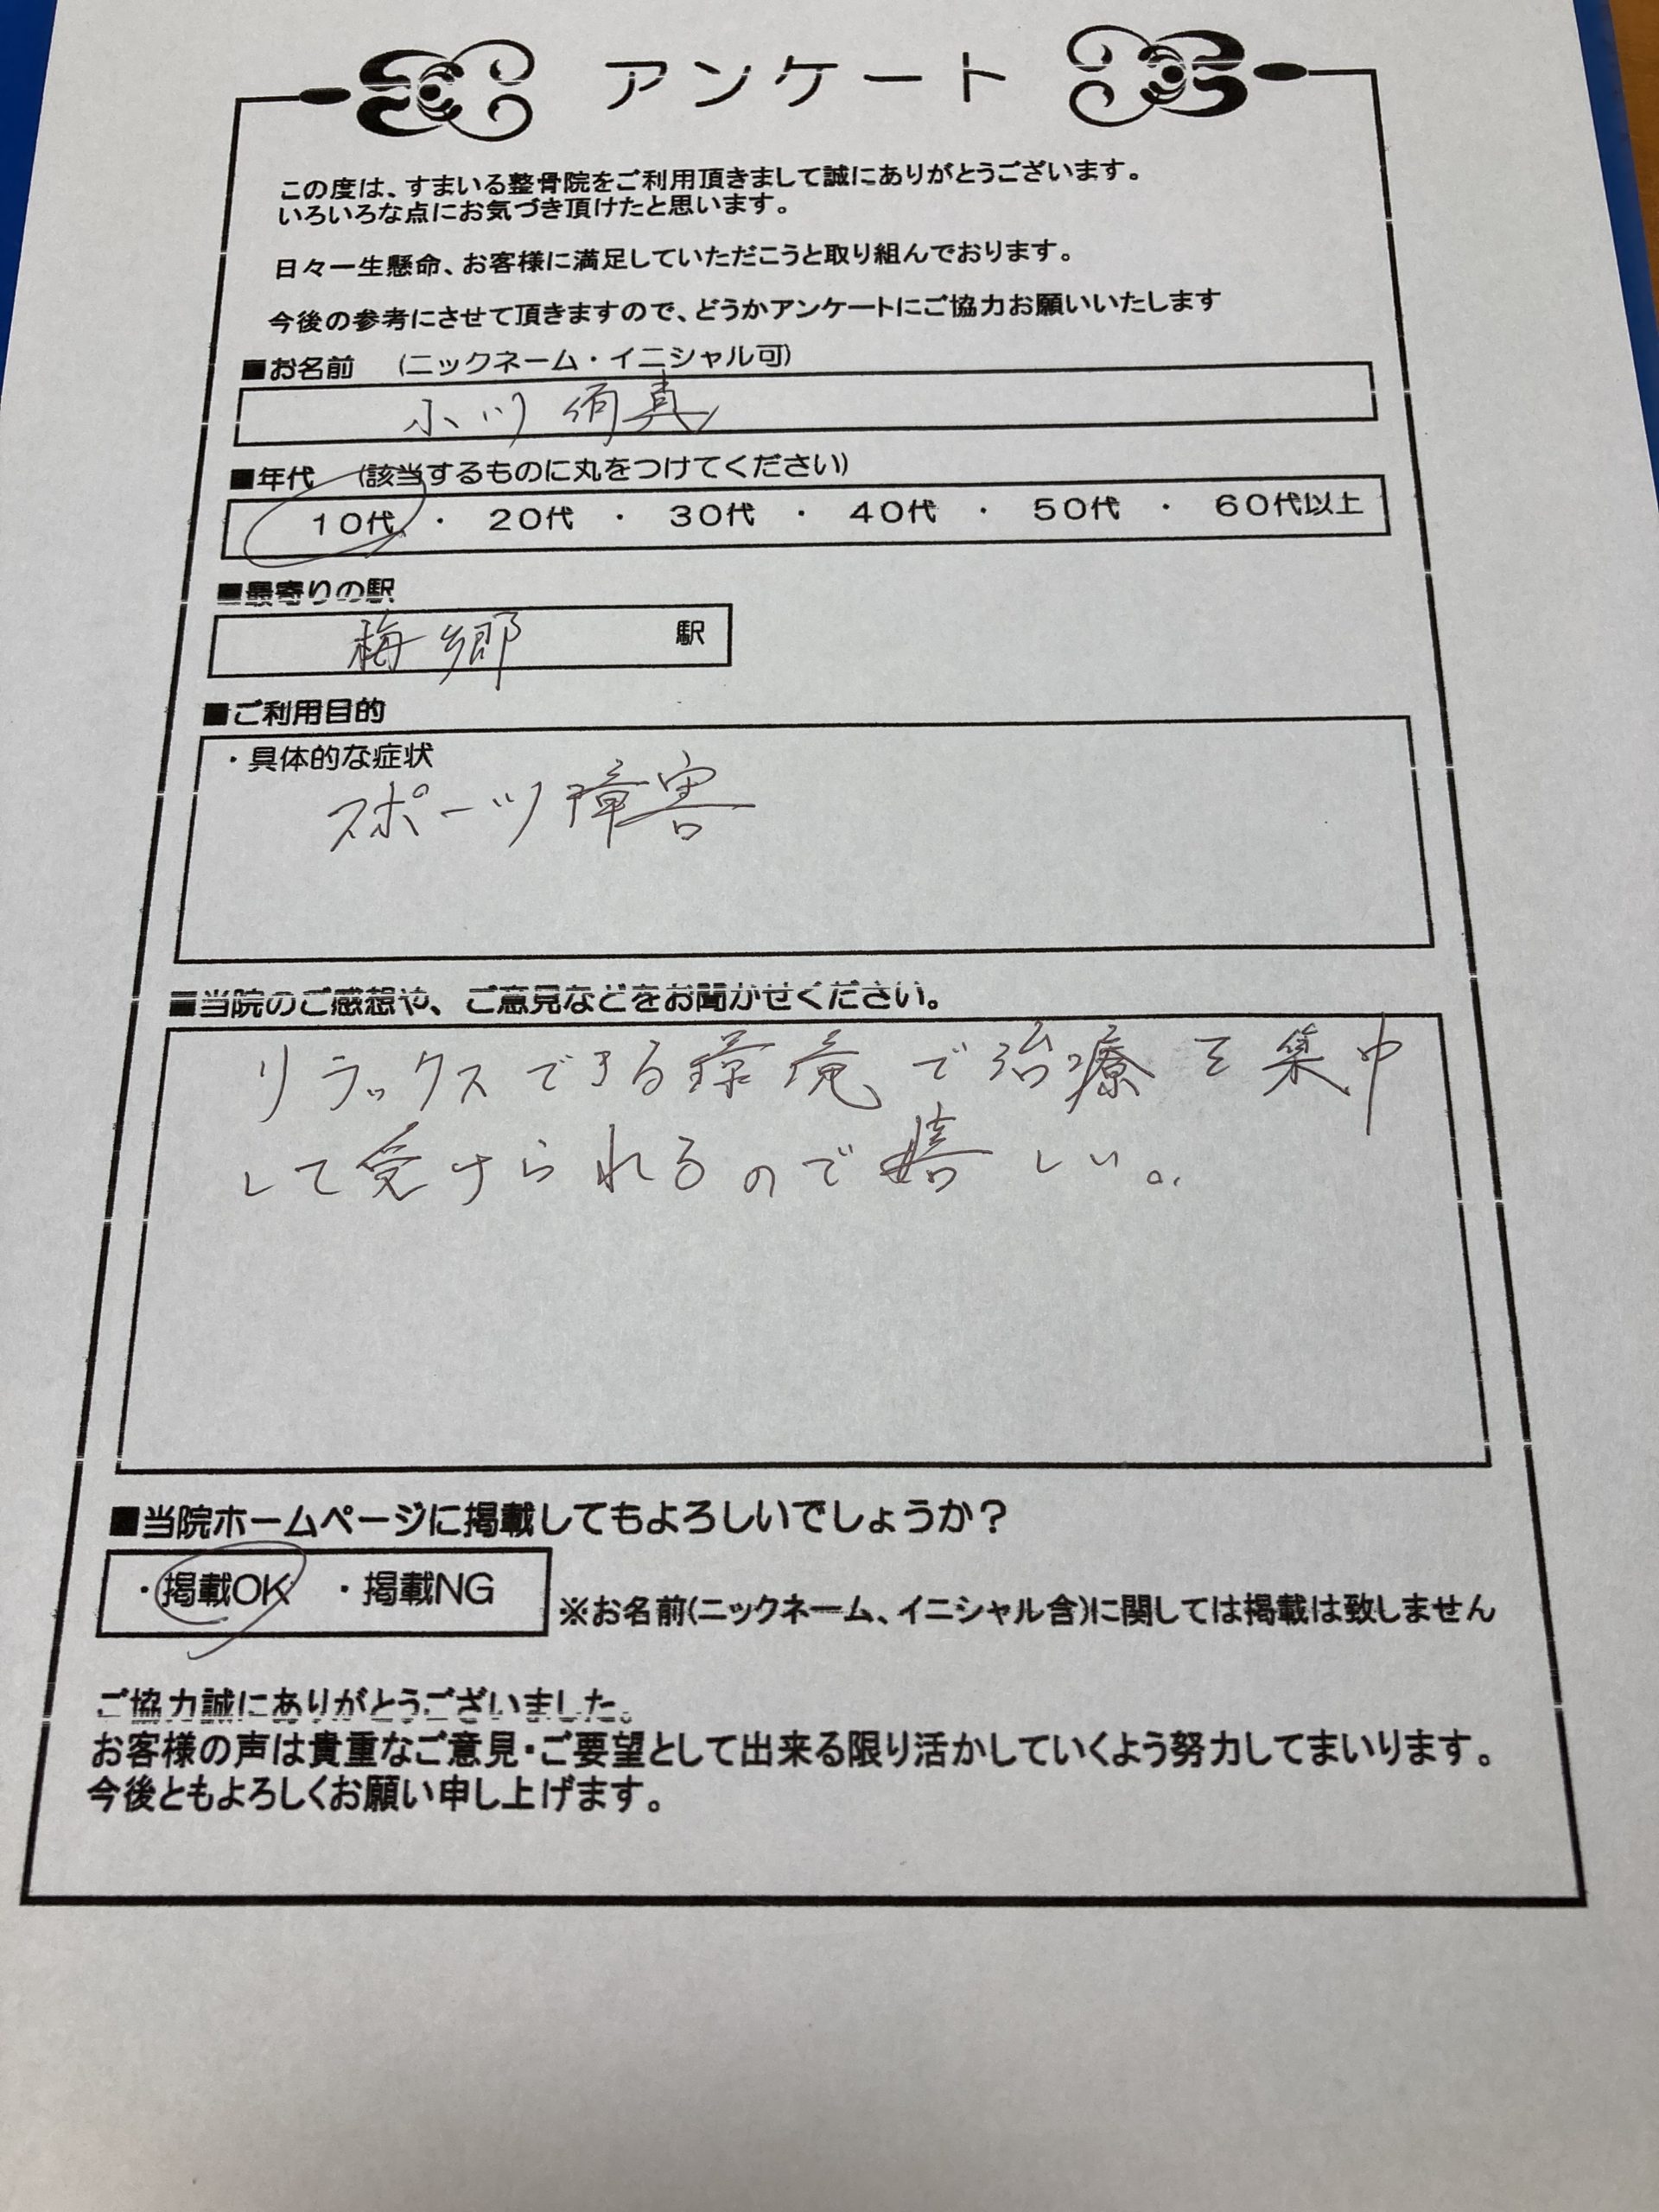 アンケート
この度は、すまいる整骨院をご利用頂きまして誠にありがとうございます。
いろいろな点にお気づき頂けたと思います。
日々一生懸命、お客様に満足していただこうと取り組んでおります。
今後の参考にさせて頂きますので、どうかアンケートにご協力お願いいたします
■お名前 (ニックネーム・イニシャル可)
小川 真
■年代 (該当するものに丸をつけてください)
10代 ・ 20代 ・ 30代 ・ 40代 ・ 50代 ・ 60代以上
■最寄りの駅
梅郷 駅
■ご利用目的
・具体的な症状
スポーツ障害
■当院のご感想や、ご意見などをお聞かせください。
リラックスできる環境で治療を集中
して受けられるので嬉しい。
■当院ホームページに掲載してもよろしいでしょうか?
・掲載OK ・掲載NG ※お名前(ニックネーム、イニシャル含)に関しては掲載は致しません
ご協力誠にありがとうございました。
お客様の声は貴重なご意見・ご要望として出来る限り活かしていくよう努力してまいります。
今後ともよろしくお願い申し上げます。